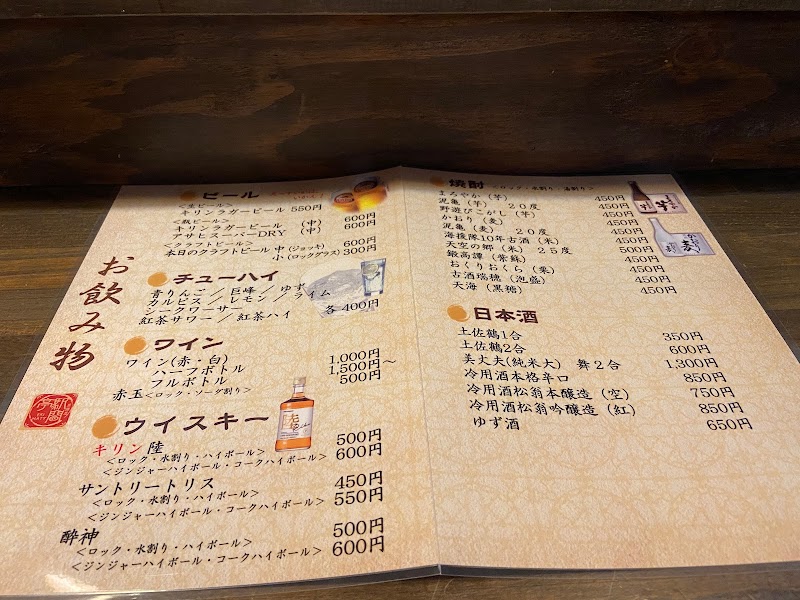 お飲み物
ビール
<生ビール>
キリンラガービール 550円
<瓶ビール>
キリンラガービール (中) 600円
アサヒスーパーDRY (中) 600円
<クラフトビール>
本日のクラフトビール 中(ジョッキ) 600円
小(ロックグラス) 300円
チューハイ
青りんご/巨峰/ゆず
カルピス/レモン/ライム
シークワーサー
紅茶サワー/紅茶ハイ 各400円
ワイン
ワイン(赤・白)
ハーフボトル 1,000円
フルボトル 1,500円~
赤玉<ロック・ソーダ割り> 500円
ウイスキー
キリン陸
<ロック・水割り・ハイボール> 500円
<ジンジャーハイボール・コークハイボール> 600円
サントリートリス
<ロック・水割り・ハイボール> 450円
<ジンジャーハイボール・コークハイボール> 550円
酔神
<ロック・水割り・ハイボール> 500円
<ジンジャーハイボール・コークハイボール> 600円
焼酎 <ロック・水割り・湯割り>
まろやか(芋) 450円
泥亀(芋) 20度 450円
野遊びこがし(芋) 450円
かおり(麦) 450円
泥亀(麦) 20度 450円
海援隊10年古酒(米) 500円
天空の郷(米) 25度 450円
鍛高譚(紫蘇) 450円
おくりおくら(栗) 450円
古酒瑞穂(泡盛) 450円
天海(黒糖) 450円
日本酒
土佐鶴1合 350円
土佐鶴2合 600円
美丈夫(純米大) 舞2合 1,300円
冷用酒本格辛口 850円
冷用酒松翁本醸造(空) 750円
冷用酒松翁吟醸造(紅) 850円
ゆず酒 650円